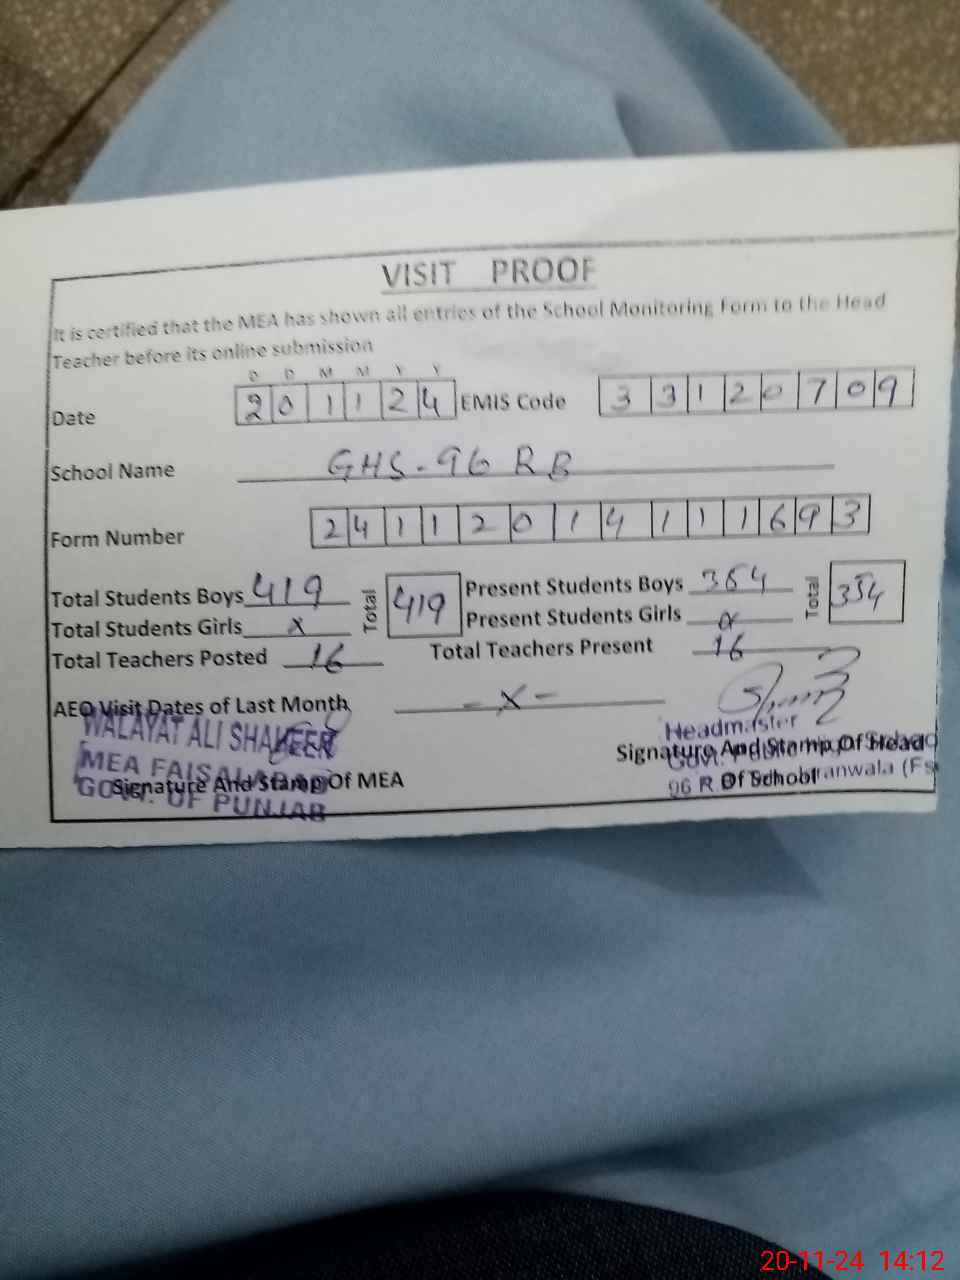 VISIT PROOF
It is certified that the MEA has shown all entries of the School Monitoring Form to the Head
Teacher before its online submission
D D M M Y Y
Date 201124 EMIS Code 33120709
School Name GHS-96 RB
Form Number 24112014111693
Total Students Boys 419 Total 419 Present Students Boys 364 Total 354
Total Students Girls x Present Students Girls
Total Teachers Posted 16 Total Teachers Present 16
AEO Visit Dates of Last Month - x -
WALAYAT ALI SHAKEER
MEA FAISALABAD
GOVT. OF PUNJAB
Signature And Stamp Of MEA
Headmaster
Signature And Stamp Of Head
Of School
96 R.B
20-11-24 14:12